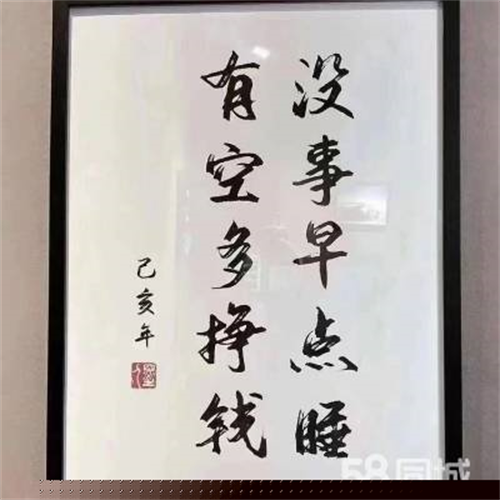 没事早点睡
有空多挣钱
己亥年
58同城